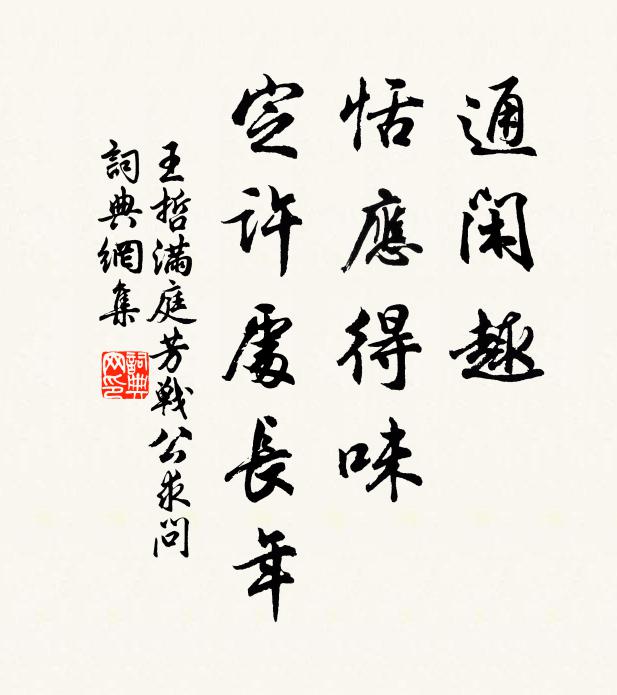 通閑趣
恬應得味
定許處長年
王哲滿庭芳戰公求問
詞典網集
詞典网印